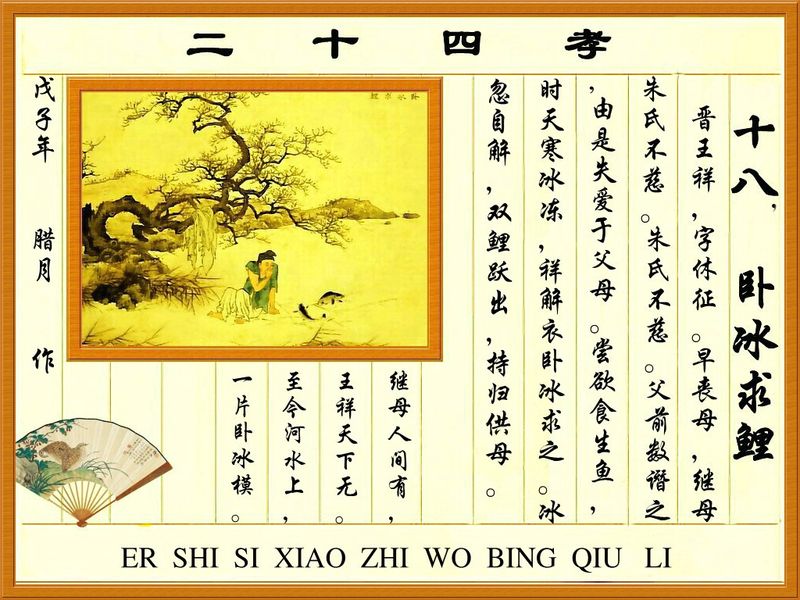 二十四孝
十八，卧冰求鲤
晋王祥，字休征。早丧母，继母
朱氏不慈。朱氏不慈。父前数谮之
，由是失爱于父母。尝欲食生鱼，
时天寒冰冻，祥解衣卧冰求之。冰
忽自解，双鲤跃出，持归供母。
继母人间有，
王祥天下无。
至今河水上，
一片卧冰模。
戊子年 腊月 作
ER SHI SI XIAO ZHI WO BING QIU LI